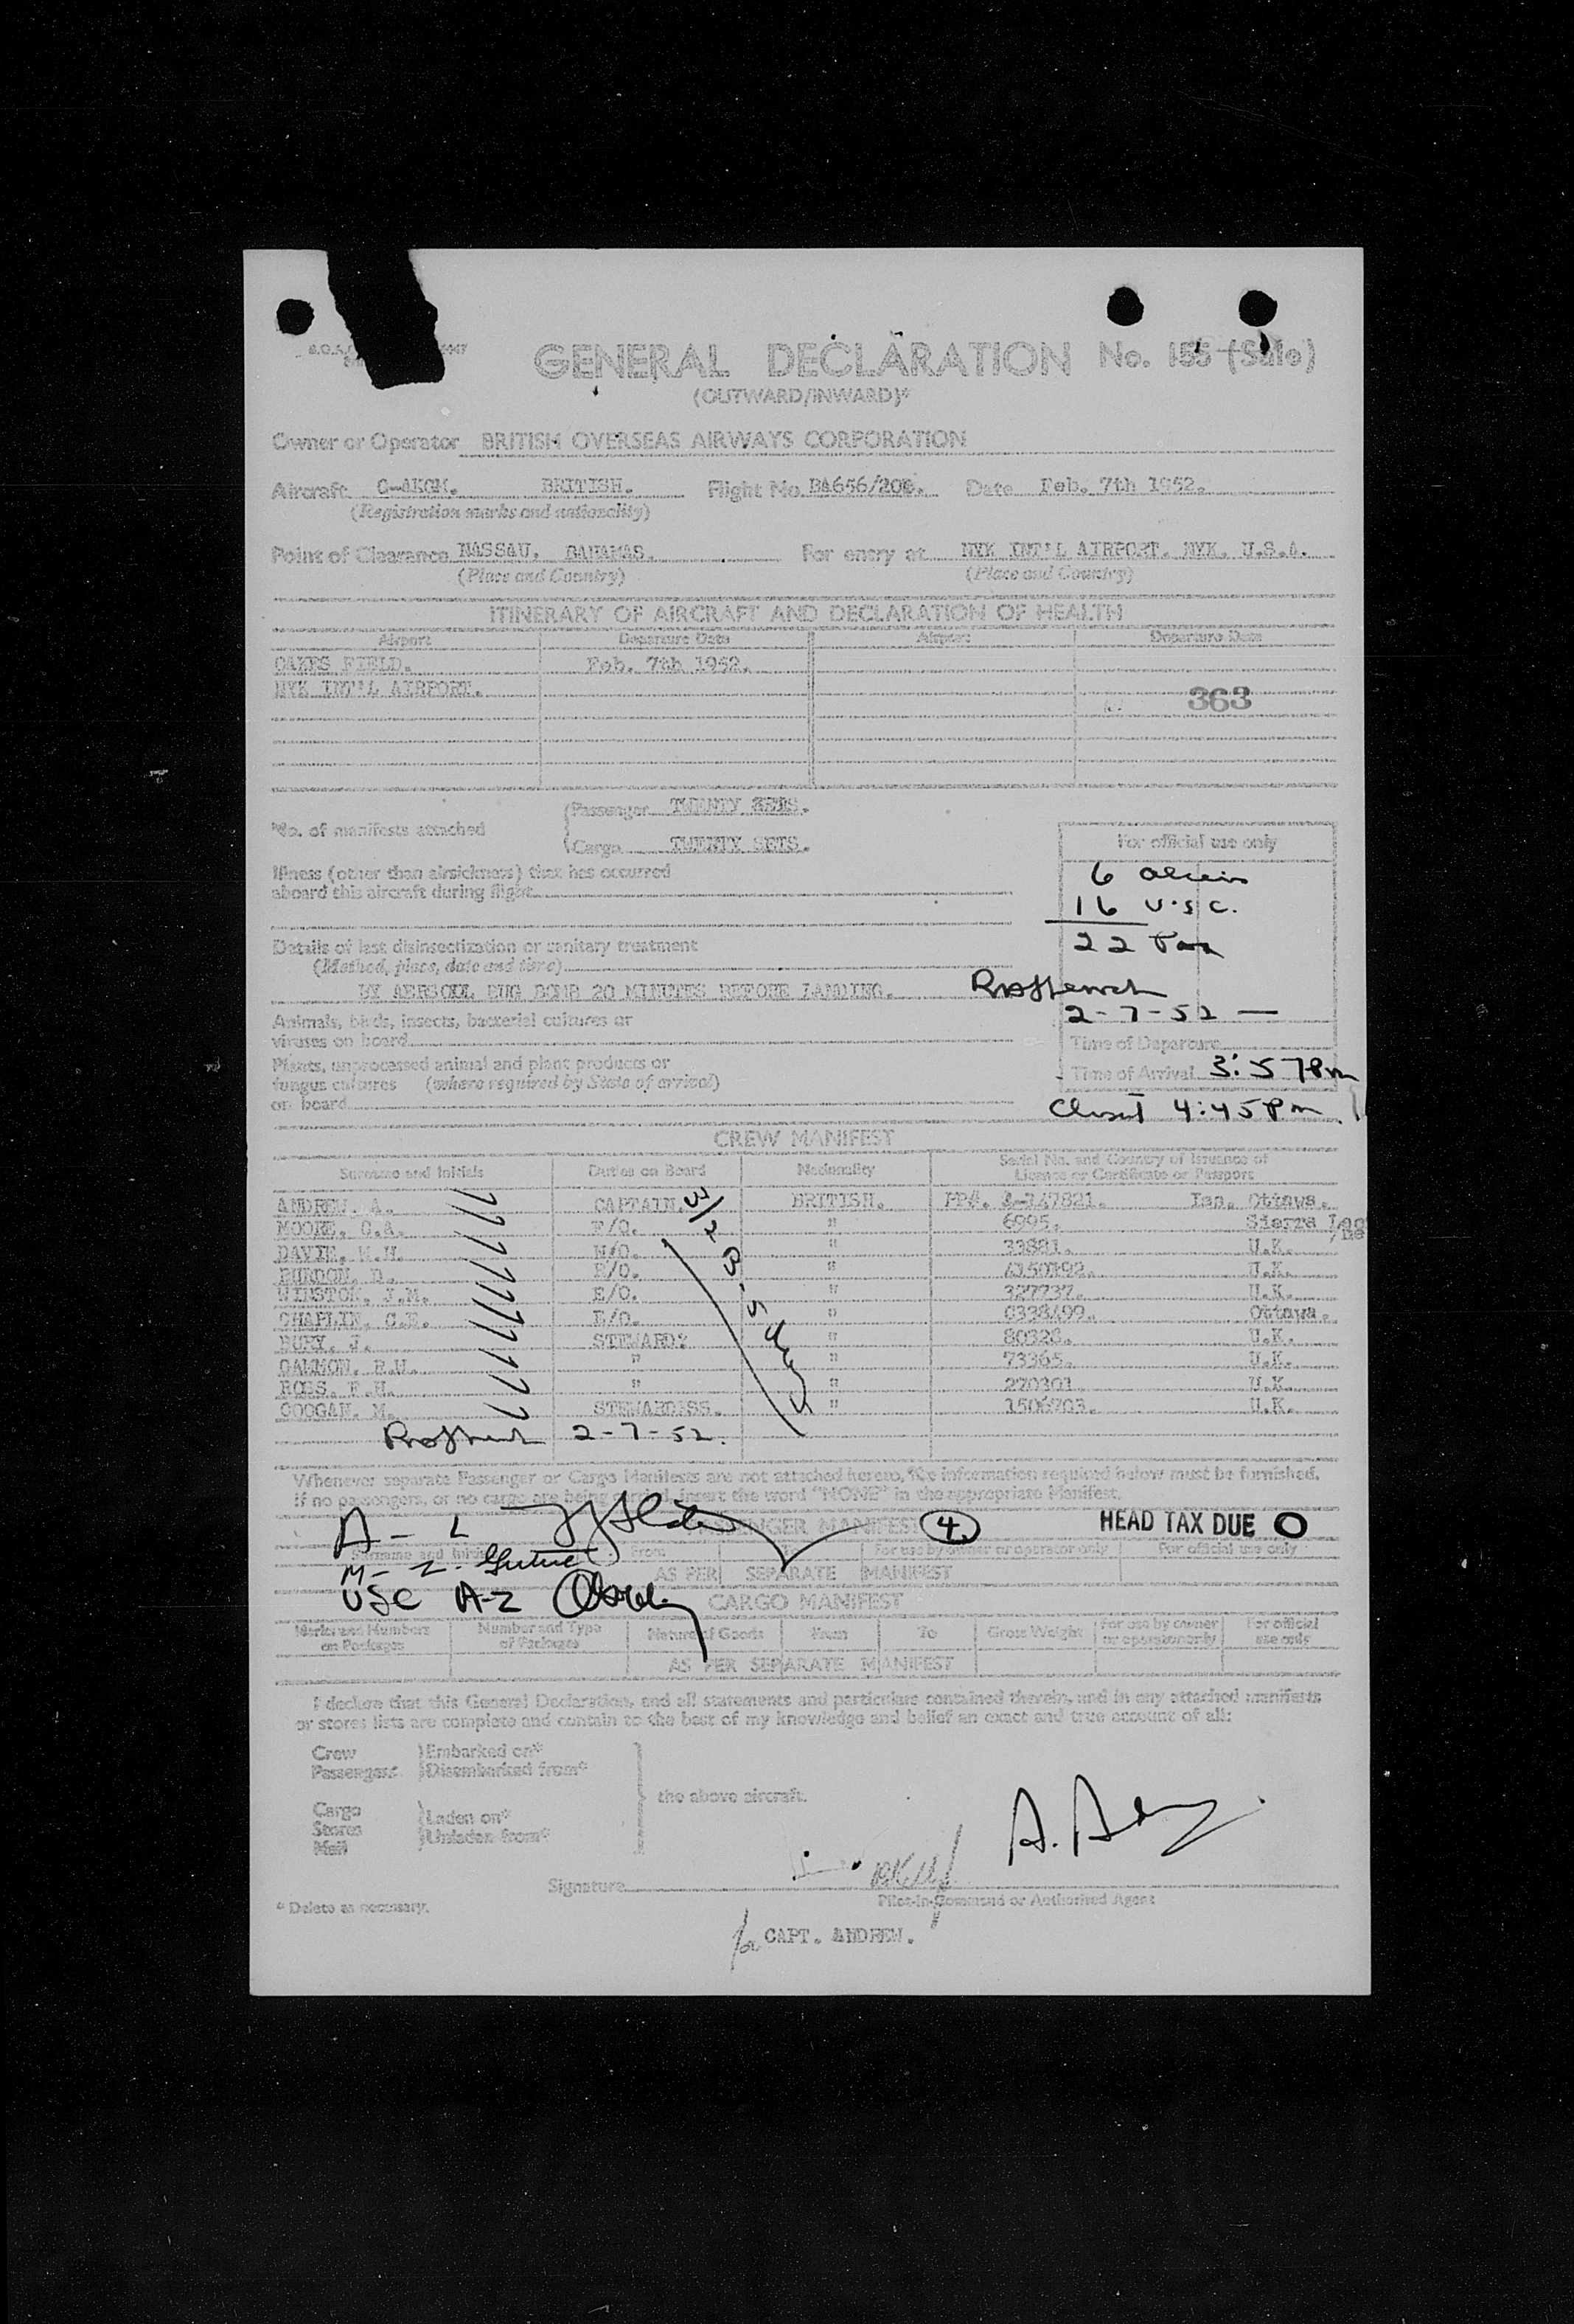 GENERAL DECLARATION No. 155 (Sale)
(OUTWARD/INWARD)*
Owner or Operator BRITISH OVERSEAS AIRWAYS CORPORATION
Aircraft BRITISH. Flight No. Date Feb. 7th 1952.
(Registration marks and nationality)
Point of Clearance NASSAU, BAHAMAS. For entry at NYK INT'L AIRPORT. NYK. U.S.A.
(Place and Country) (Place and Country)
ITINERARY OF AIRCRAFT AND DECLARATION OF HEALTH
Airport Departure Date Airport Departure Date
OAKES FIELD. Feb. 7th 1952.
NYK INT'L AIRPORT.
363
*No. of manifests attached
Passenger TWENTY SETS.
Cargo TWENTY SETS.
For official use only
Illness (other than airsickness) that has occurred
aboard this aircraft during flight
6 alien
16 U.S.C.
22 Pax
Details of last disinsectization or sanitary treatment
(Method, place, date and time)
BY AERSOOL BUG BOMB 20 MINUTES BEFORE LANDING.
2-7-52 —
Animals, birds, insects, bacterial cultures or
viruses on board
Time of Departure
Plants, unprocessed animal and plant products or
fungus cultures (where required by State of arrival)
on board
Time of Arrival 3:57 Pm
Closed 4:45 Pm
CREW MANIFEST
Surname and Initials Duties on Board Nationality Serial No. and Country of Issuance of
Licence or Certificate or Passport
ANDREW. A. CAPTAIN. BRITISH. PP#. Isn. Ottawa.
MOORE. C.A. F/O. " 6995. Sierra Leone
DAVIE. W.H. N/O. " 33881. U.K.
BURDON. D. R/O. " U.K.
WINSTON. J.M. E/O. " 327737. U.K.
CHAPLIN. C.E. E/O. " Ottawa.
BURY. J. STEWARD: " 80328. U.K.
GAMMON. R.W. " " 73365. U.K.
ROSS. F.H. " " 270301 U.K.
COOGAN. M. STEWARDESS. " U.K.
2-7-52.
Whenever separate Passenger or Cargo Manifests are not attached hereto, the information required below must be furnished.
If no passengers, or no cargo are being carried, insert the word "NONE" in the appropriate Manifest.
A - L
PASSENGER MANIFEST 4 HEAD TAX DUE O
Surname and Initials From To For use by owner or operator only For official use only
M - Z
AS PER SEPARATE MANIFEST
USC A-Z
CARGO MANIFEST
Marks and Numbers on Packages Number and Type of Packages Nature of Goods From To Gross Weight For use by owner or operator only For official use only
AS PER SEPARATE MANIFEST
I declare that this General Declaration, and all statements and particulars contained therein, and in any attached manifests
or stores lists are complete and contain to the best of my knowledge and belief an exact and true account of all:
Crew Embarked on*
Passengers Disembarked from*
the above aircraft.
Cargo
Stores Laden on*
Mail Unladen from*
Signature
Pilot-in-Command or Authorised Agent
* Delete as necessary.
for CAPT. ANDREW.